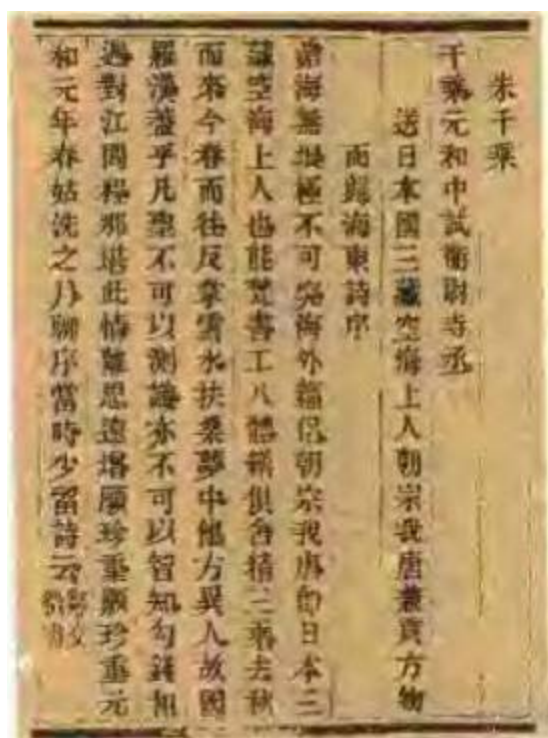 朱千乘
千乘元和中試衛尉寺丞
送日本國三藏空海上人朝宗我唐兼貢方物
而歸海東詩序
滄海無垠極不可究海外緇侶朝宗我唐即日本三
藏空海上人也能梵書工八體繕俱舍精三乘去秋
而來今春而往反掌雲水扶桑夢中他方異人故國
羅漢蓋乎凡聖不可以測識亦不可以智知勾踐相
遇對江問程那堪此情離思遠增願珍重願珍重元
和元年春姑洗之月聊序當時少留詩云